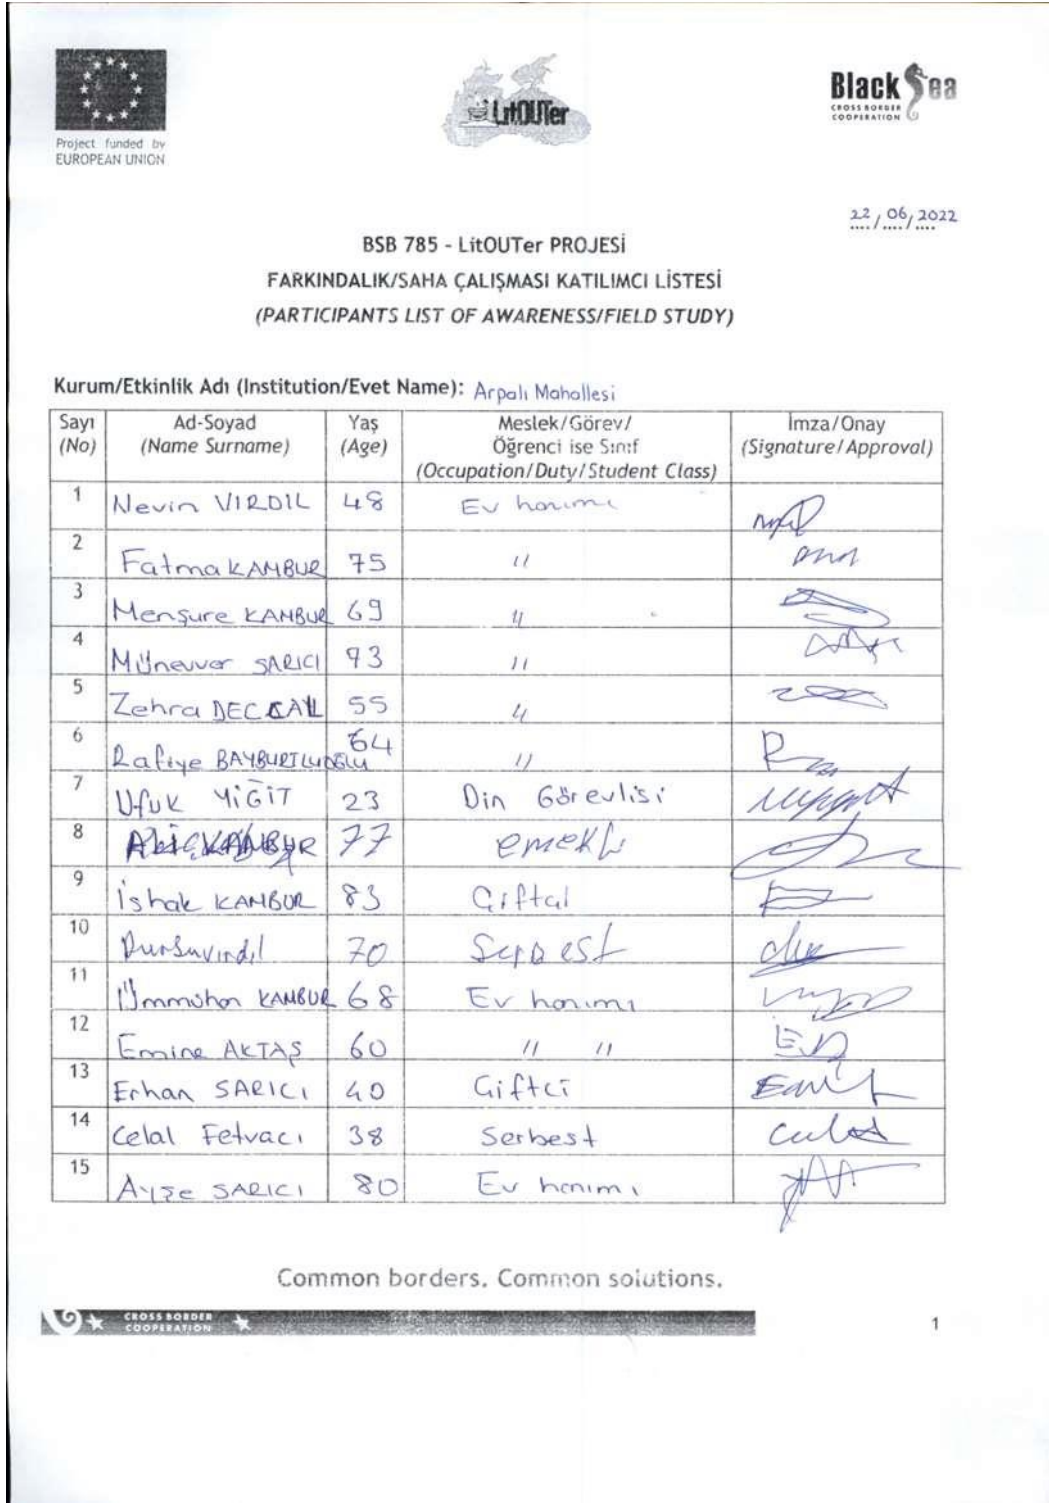 Project funded by
EUROPEAN UNION
LitOUTer
Black Sea
CROSS BORDER
COOPERATION
22/06/2022
BSB 785 - LitOUTer PROJESİ
FARKINDALIK/SAHA ÇALIŞMASI KATILIMCI LİSTESİ
(PARTICIPANTS LIST OF AWARENESS/FIELD STUDY)
Kurum/Etkinlik Adı (Institution/Evet Name): Arpalı Mahallesi
Sayı Ad-Soyad Yaş Meslek/Görev/ İmza/Onay
(No) (Name Surname) (Age) Öğrenci ise Sınıf (Signature/Approval)
(Occupation/Duty/Student Class)
1 Nevin VIRDIL 48 Ev hanımı
2 Fatma KAMBUR 75 "
3 Menşure KAMBUR 69 "
4 Münevver SARICI 93 "
5 Zehra 55 "
6 Rafiye BAYBURTLUOĞLU 64 "
7 Ufuk YİĞİT 23 Din Görevlisi
8 KAMBUR 77 emekli
9 İshak KAMBUR 83 Çiftçi
10 Dursun Virdil 70 Serbest
11 Ümmühan KAMBUR 68 Ev hanımı
12 Emine AKTAŞ 60 " "
13 Erhan SARICI 40 Çiftçi
14 Celal Fetvacı 38 Serbest
15 Ayşe SARICI 80 Ev hanımı
Common borders. Common solutions.
CROSS BORDER
COOPERATION
1